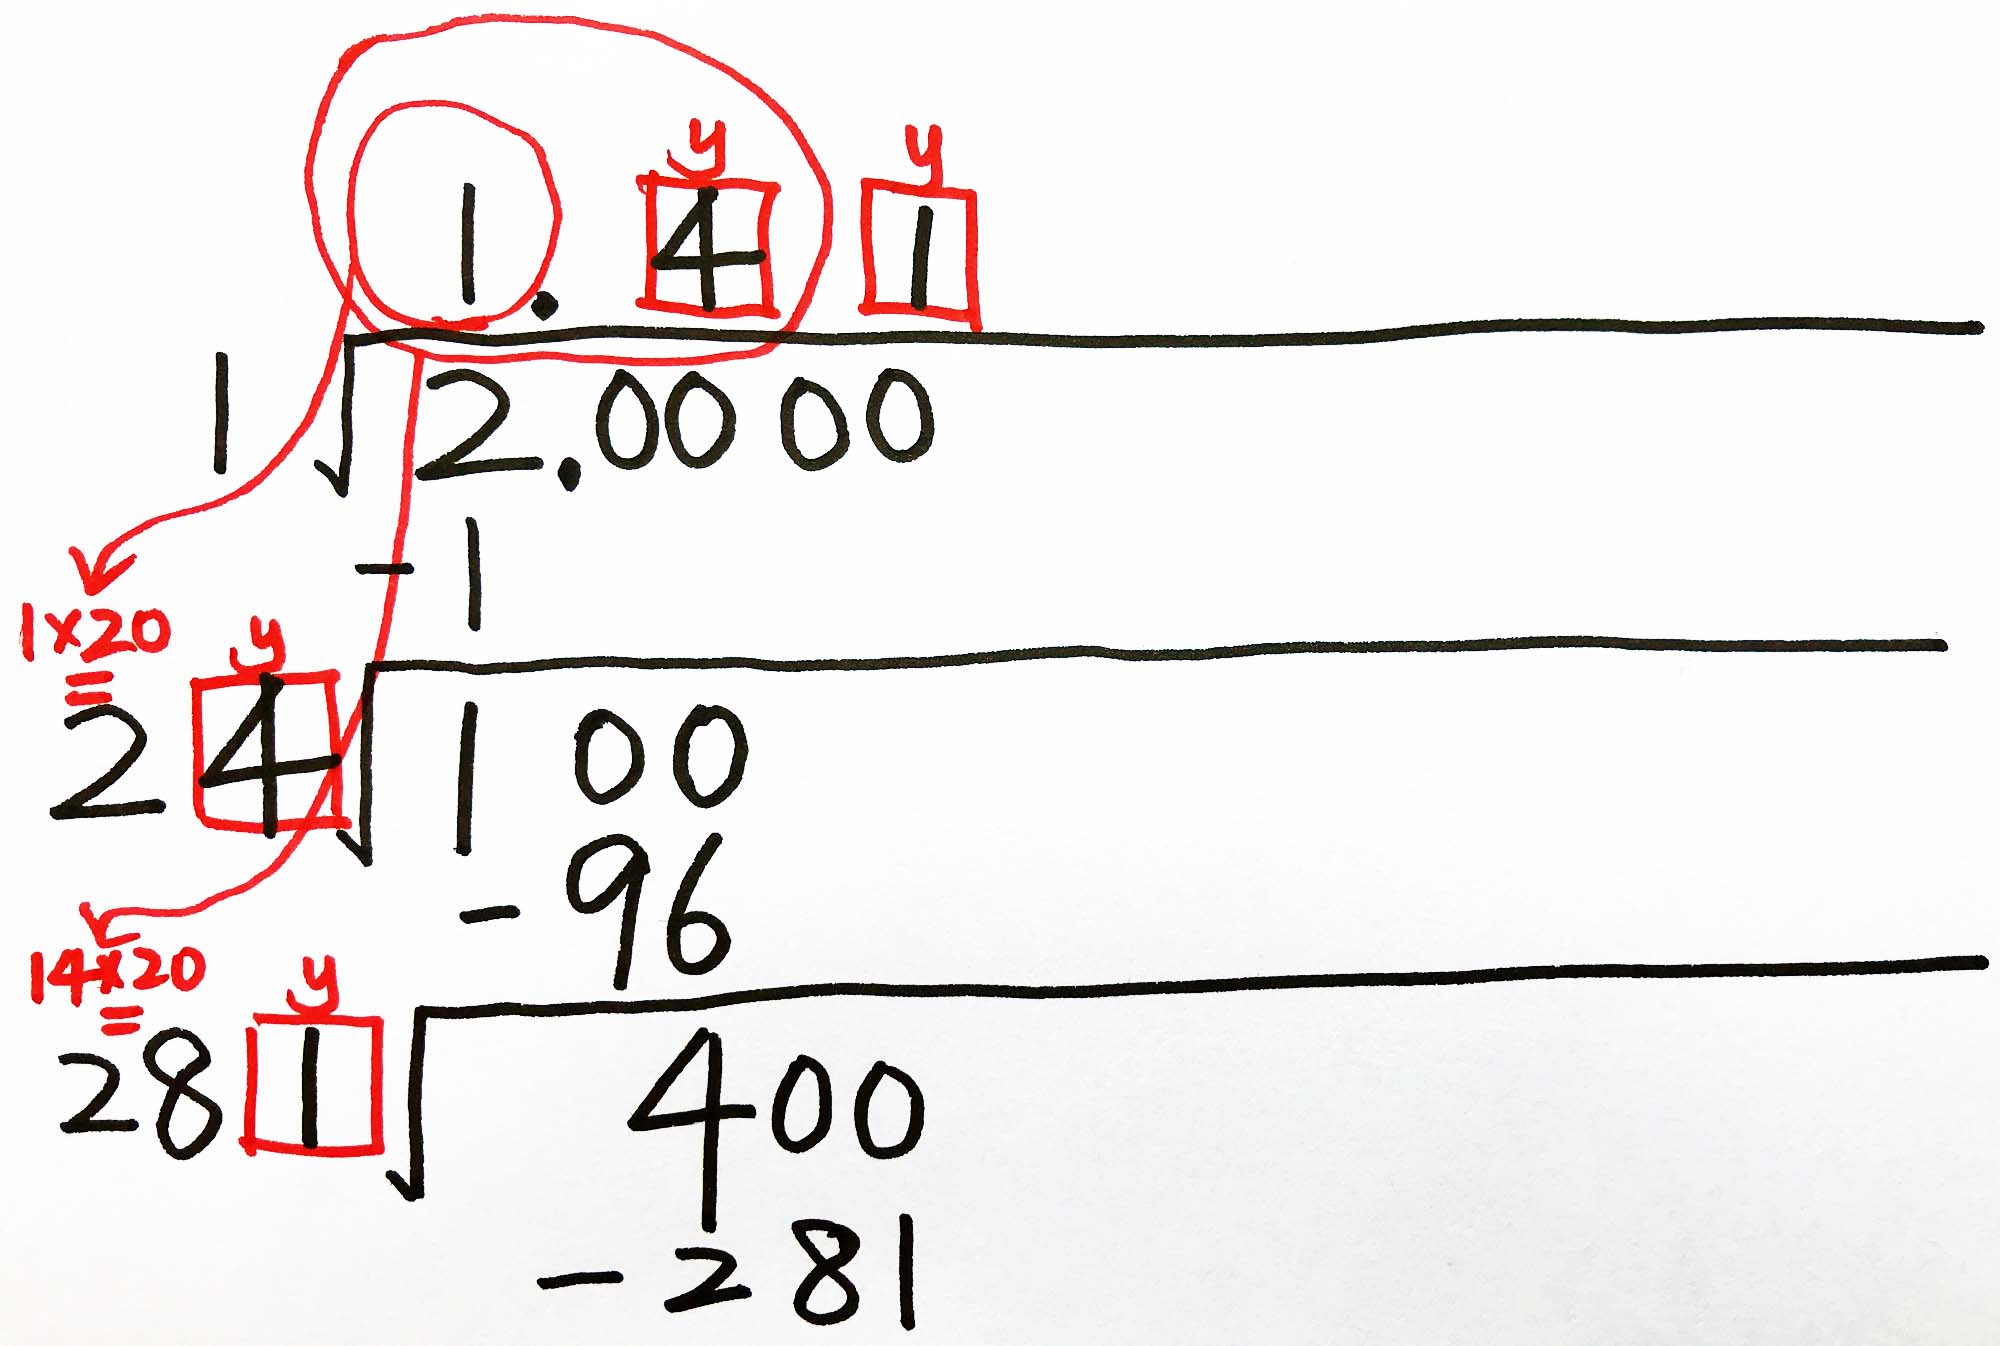 y y
1. 4 1
1 √ 2.00 00
- 1
1×20
= y
2 4 √ 1 00
- 96
14×20
= y
28 1 √ 400
- 281